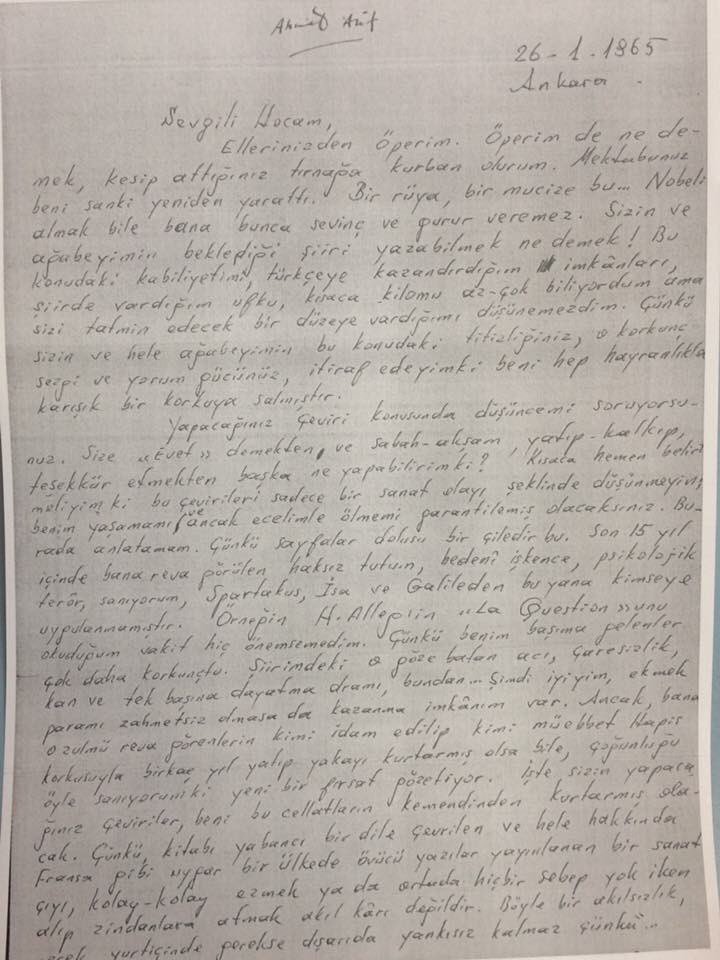 Ahmed Arif
26-1-1965
Ankara.
Sevgili Hocam,
Ellerinizden öperim. Öperim de ne de-
mek, kesip attığınız tırnağa kurban olurum. Mektubunuz
beni sanki yeniden yarattı. Bir rüya, bir mucize bu... Nobeli
almak bile bana bunca sevinç ve gurur veremez. Sizin ve
ağabeyimin beklediği şiiri yazabilmek ne demek! Bu
konudaki kabiliyetimi, türkçeye kazandırdığım imkânları,
şiirde vardığım ufku, kısaca kilomu az-çok biliyordum ama
sizi tatmin edecek bir düzeye vardığımı düşünemezdim. Çünkü
sizin ve hele ağabeyimin bu konudaki titizliğiniz, o korkunç
sezgi ve yorum gücünüz, itiraf edeyimki beni hep hayranlıkla
karışık bir korkuya salmıştır.
Yapacağınız çeviri konusunda düşüncemi soruyorsu-
nuz. Size «Evet» demekten, ve sabah-akşam, yatıp-kalkıp,
teşekkür etmekten başka ne yapabilirimki? Kısaca hemen belirt
meliyimki bu çevirileri sadece bir sanat olayı şeklinde düşünmeyin;
benim yaşamamı ve ancak ecelimle ölmemi garantilemiş olacaksınız. Bu-
rada anlatamam. Çünkü sayfalar dolusu bir çiledir bu. Son 15 yıl
içinde bana reva görülen haksız tutum, bedenî işkence, psikolojik
terör, sanıyorum, Spartakus, İsa ve Galileden bu yana kimseye
uygulanmamıştır. Örneğin H. Alleg'in «La Question»unu
okuduğum vakit hiç önemsemedim. Çünkü benim başıma gelenler
çok daha korkunçtu. Şiirimdeki o göze batan acı, çaresizlik,
kan ve tek başına dayatma dramı, bundan... Şimdi iyiyim, ekmek
paramı zahmetsiz olmasa da kazanma imkânım var. Ancak, bana
o zulmü reva görenlerin kimi idam edilip kimi müebbet Hapis
korkusuyla birkaç yıl yatıp yakayı kurtarmış olsa bile, çoğunluğu
öyle sanıyorumki yeni bir fırsat gözetiyor. İşte sizin yapaca
ğınız çeviriler, beni bu cellâtların kemendinden kurtarmış ola-
cak. Çünkü, kitabı yabancı bir dile çevrilen ve hele hakkında
Fransa gibi uygar bir ülkede övücü yazılar yayınlanan bir sanat
çıyı, kolay-kolay ezmek ya da ortada hiçbir sebep yok iken
alıp zindanlara atmak akıl kârı değildir. Böyle bir akılsızlık,
gerek yurtiçinde gerekse dışarıda yankısız kalmaz çünkü...